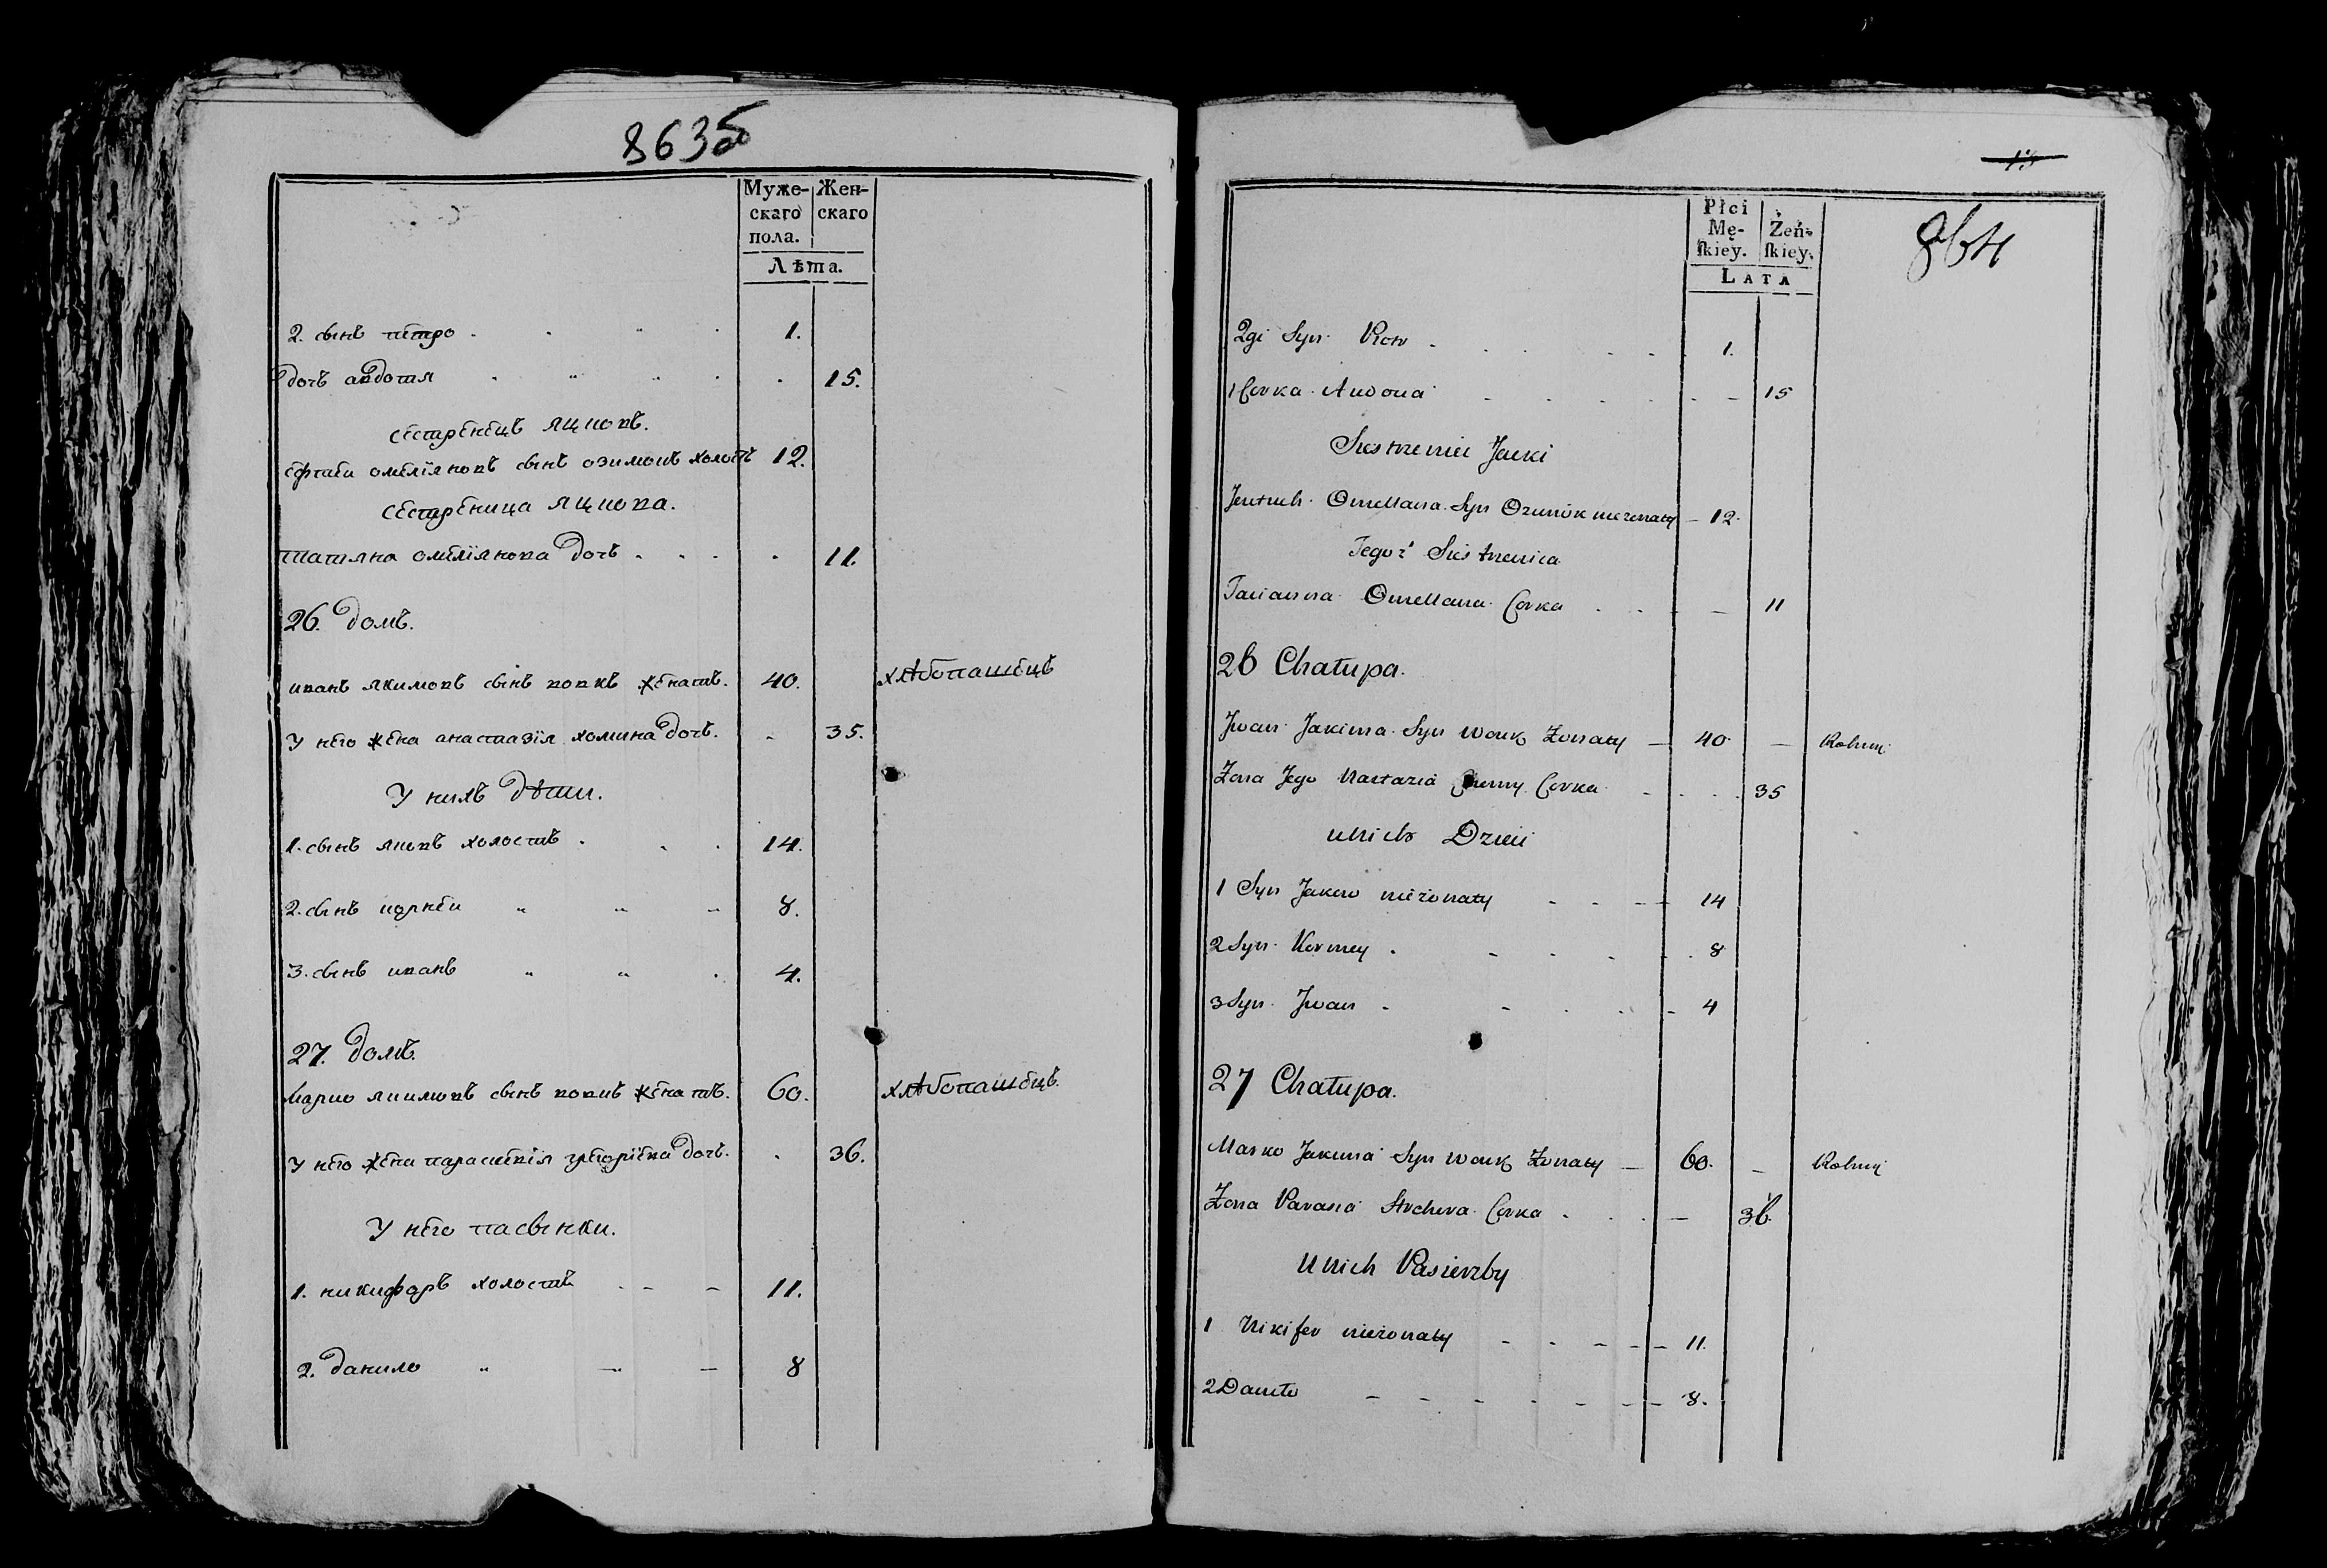 863об
Муже-
скаго
пола.
Жен-
скаго
Лѣта.
2. сынъ петро 1.
дочь авдотя 15.
сестренецъ яцковъ.
омеліяновъ сынъ озимокъ холостъ 12.
сестреница яцкова.
татяна омеліянова дочь 11.
26. домъ.
иванъ якимовъ сынъ вовкъ женатъ. 40. хлѣбопашецъ
у него жена анастазія хомина дочь. 35.
У нихъ дѣти.
1. сынъ яковъ холостъ 14.
2. сынъ корней 8.
3. сынъ иванъ 4.
27. домъ.
марко якимовъ сынъ вовкъ женатъ. 60. хлѣбопашецъ.
у него жена параскевія дочь. 36.
У него пасынки.
1. никифоръ холостъ 11.
2. данило 8
13
864
Płci
Mę-
skiey.
Żeń-
skiey.
LATA
2gi Syn Piotr 1.
1 Corka Awdotia 15
Siestrzeniec Jacki
Omellana Syn Ozimok nieżonaty 12.
Tegoż Siestrzenica
Tacianna Omellana Corka 11
26 Chałupa.
Iwan Jakima Syn Wouk Żonaty 40. Rolnik
Żona Jego Nastazia Corka 35
U nich Dzieci
1 Syn Jakow nieżonaty 14
2 Syn Korniey 8
3 Syn Iwan 4
27 Chałupa.
Marko Jakima Syn Wouk Żonaty 60. Rolnik
Żona Parasia Corka 36.
U nich Pasierzby
1 Nikifor nieżonaty 11.
2 Daniło 8.